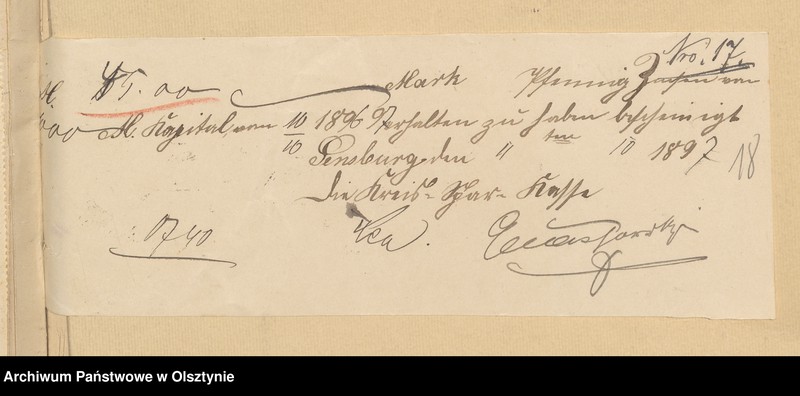 Nro. 17.
M. 45.00 Mark Pfennig Zinsen von
000 M. Kapital von 10/10 1896/97 erhalten zu haben bescheinigt
Sensburg, den " ten 10 1897
18
Die Kreis-Spar-Kasse
1740
Archiwum Państwowe w Olsztynie